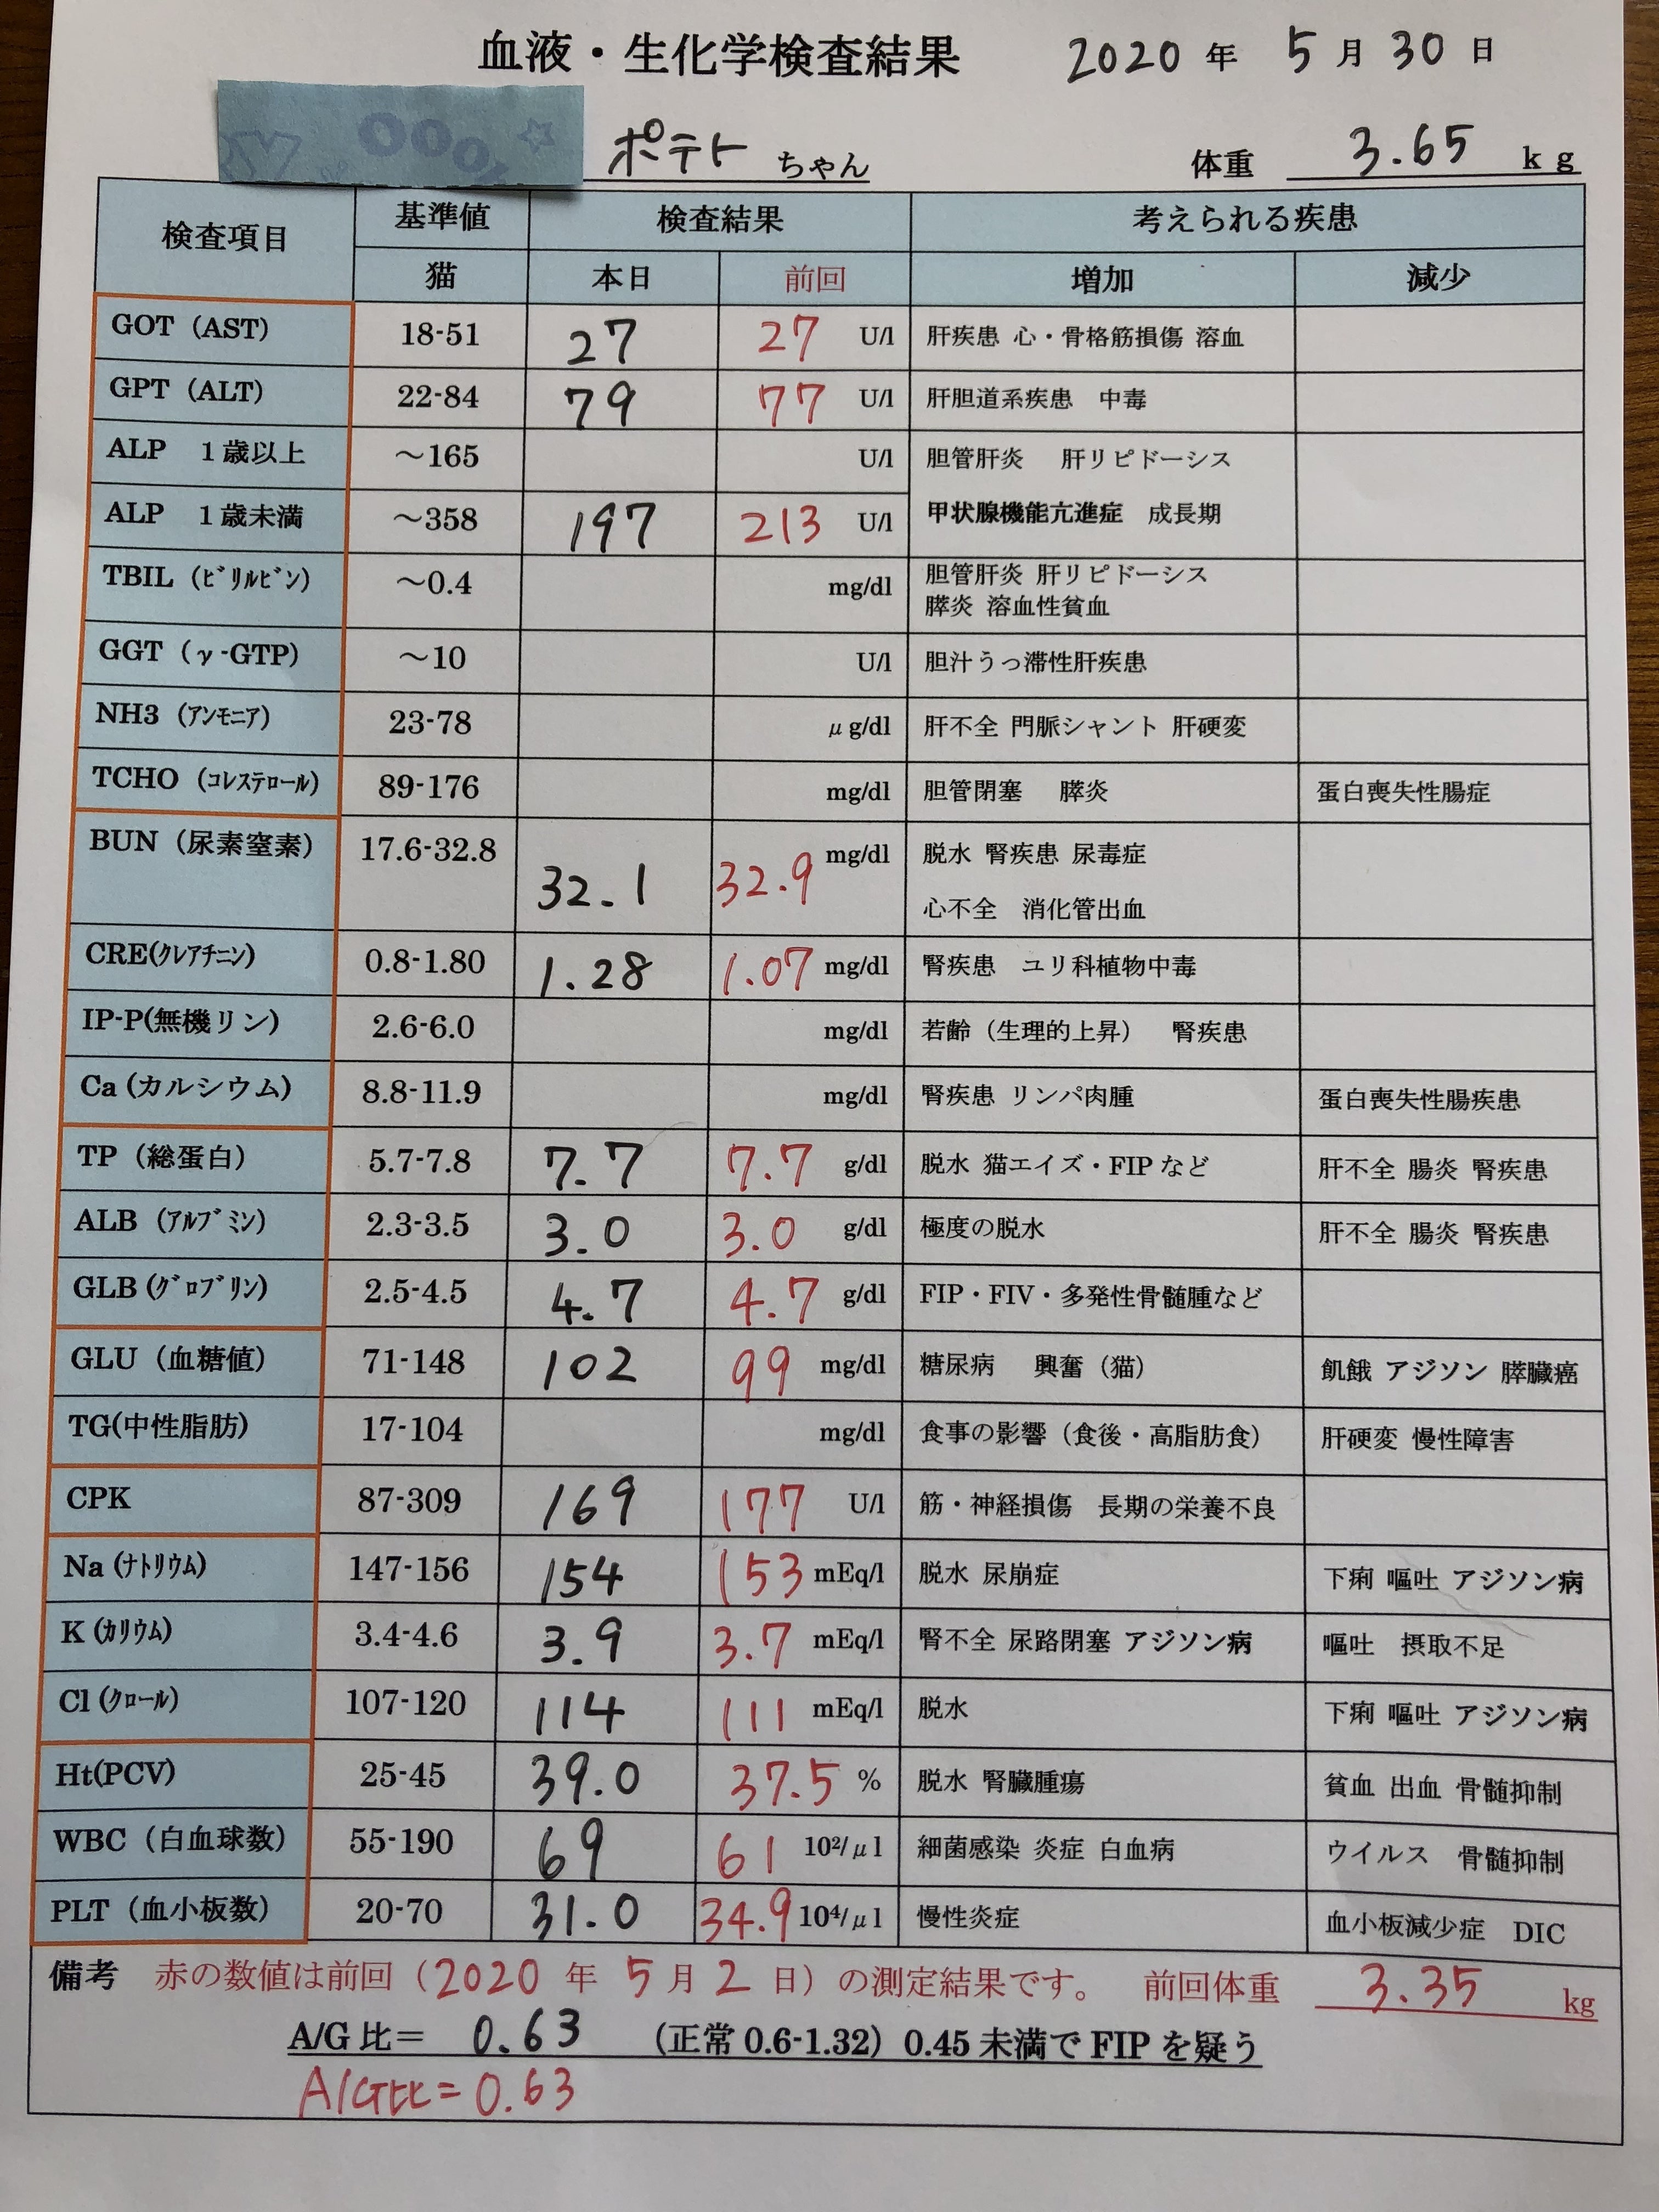 血液・生化学検査結果 2020 年 5 月 30 日
ポテト ちゃん 体重 3.65 kg
検査項目 基準値 検査結果 考えられる疾患
猫 本日 前回 増加 減少
GOT (AST) 18-51 27 27 U/l 肝疾患 心・骨格筋損傷 溶血
GPT (ALT) 22-84 79 77 U/l 肝胆道系疾患 中毒
ALP 1歳以上 ～165 U/l 胆管肝炎 肝リピドーシス
ALP 1歳未満 ～358 197 213 U/l 甲状腺機能亢進症 成長期
TBIL (ﾋﾞﾘﾙﾋﾞﾝ) ～0.4 mg/dl 胆管肝炎 肝リピドーシス
膵炎 溶血性貧血
GGT (γ-GTP) ～10 U/l 胆汁うっ滞性肝疾患
NH3 (ｱﾝﾓﾆｱ) 23-78 μg/dl 肝不全 門脈シャント 肝硬変
TCHO (ｺﾚｽﾃﾛｰﾙ) 89-176 mg/dl 胆管閉塞 膵炎 蛋白喪失性腸症
BUN (尿素窒素) 17.6-32.8 32.1 32.9 mg/dl 脱水 腎疾患 尿毒症
心不全 消化管出血
CRE(ｸﾚｱﾁﾆﾝ) 0.8-1.80 1.28 1.07 mg/dl 腎疾患 ユリ科植物中毒
IP-P(無機リン) 2.6-6.0 mg/dl 若齢（生理的上昇） 腎疾患
Ca (カルシウム) 8.8-11.9 mg/dl 腎疾患 リンパ肉腫 蛋白喪失性腸疾患
TP (総蛋白) 5.7-7.8 7.7 7.7 g/dl 脱水 猫エイズ・FIP など 肝不全 腸炎 腎疾患
ALB (ｱﾙﾌﾞﾐﾝ) 2.3-3.5 3.0 3.0 g/dl 極度の脱水 肝不全 腸炎 腎疾患
GLB (ｸﾞﾛﾌﾞﾘﾝ) 2.5-4.5 4.7 4.7 g/dl FIP・FIV・多発性骨髄腫など
GLU (血糖値) 71-148 102 99 mg/dl 糖尿病 興奮（猫） 飢餓 アジソン 膵臓癌
TG(中性脂肪) 17-104 mg/dl 食事の影響（食後・高脂肪食） 肝硬変 慢性障害
CPK 87-309 169 177 U/l 筋・神経損傷 長期の栄養不良
Na (ﾅﾄﾘｳﾑ) 147-156 154 153 mEq/l 脱水 尿崩症 下痢 嘔吐 アジソン病
K (ｶﾘｳﾑ) 3.4-4.6 3.9 3.7 mEq/l 腎不全 尿路閉塞 アジソン病 嘔吐 摂取不足
Cl (ｸﾛｰﾙ) 107-120 114 111 mEq/l 脱水 下痢 嘔吐 アジソン病
Ht(PCV) 25-45 39.0 37.5 % 脱水 腎臓腫瘍 貧血 出血 骨髄抑制
WBC (白血球数) 55-190 69 61 10²/μl 細菌感染 炎症 白血病 ウイルス 骨髄抑制
PLT (血小板数) 20-70 31.0 34.9 10⁴/μl 慢性炎症 血小板減少症 DIC
備考 赤の数値は前回（2020 年 5 月 2 日）の測定結果です。 前回体重 3.35 kg
A/G 比＝ 0.63 （正常 0.6-1.32）0.45 未満で FIP を疑う
A/G比=0.63